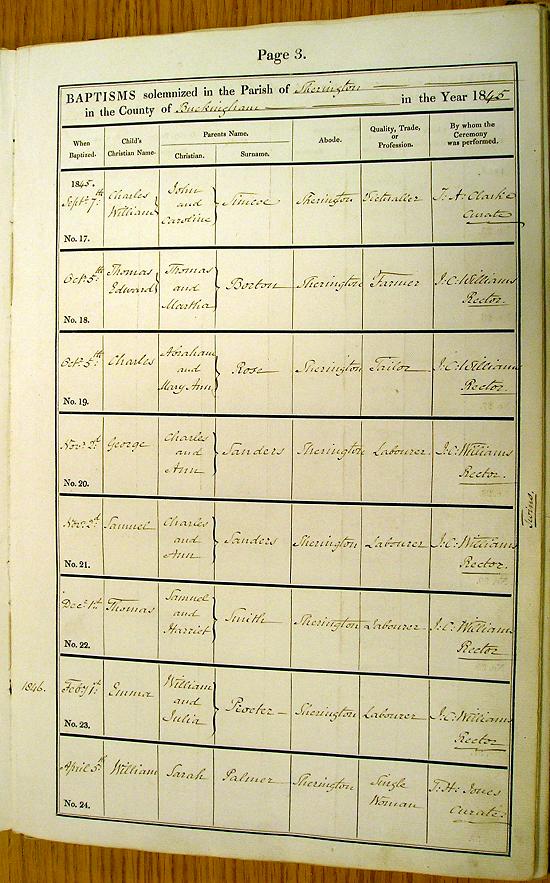 Page 3.
BAPTISMS solemnized in the Parish of Sherington
in the County of Buckingham in the Year 1845
When Baptized.
Child's Christian Name.
Parents Name.
Christian.
Surname.
Abode.
Quality, Trade, or Profession.
By whom the Ceremony was performed.
1845.
Septr 7th
No. 17.
Charles William
John and Caroline
Simcoe
Sherington
Victualler
T. A. Clarke
Curate
Octr 5th
No. 18.
Thomas Edward
Thomas and Martha
Borton
Sherington
Farmer
J. C. Williams
Rector.
Octr 5th
No. 19.
Charles
Abraham and Mary Ann
Rose
Sherington
Tailor
J. C. Williams
Rector.
Novr 2d
No. 20.
George
Charles and Ann
Sanders
Sherington
Labourer
J. C. Williams
Rector.
Novr 2d
No. 21.
Samuel
Charles and Ann
Sanders
Sherington
Labourer
J. C. Williams
Rector.
Twins.
Decr 1st
No. 22.
Thomas
Samuel and Harriet
Smith
Sherington
Labourer
J. C. Williams
Rector
1846.
Feby 1st
No. 23.
Emma
William and Julia
Procter
Sherington
Labourer
J. C. Williams
Rector
April 5th
No. 24.
William
Sarah
Palmer
Sherington
Single Woman
T. H. Jones
Curate.